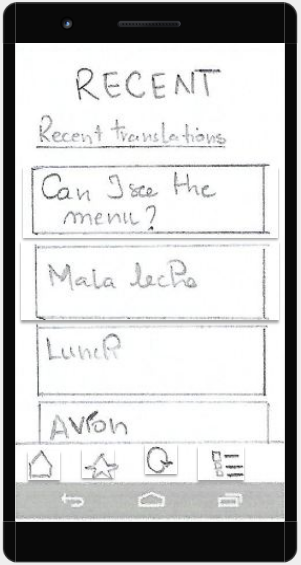 RECENT
Recent translations
Can I see the
menu?
Mala leche
Lunch
Avion